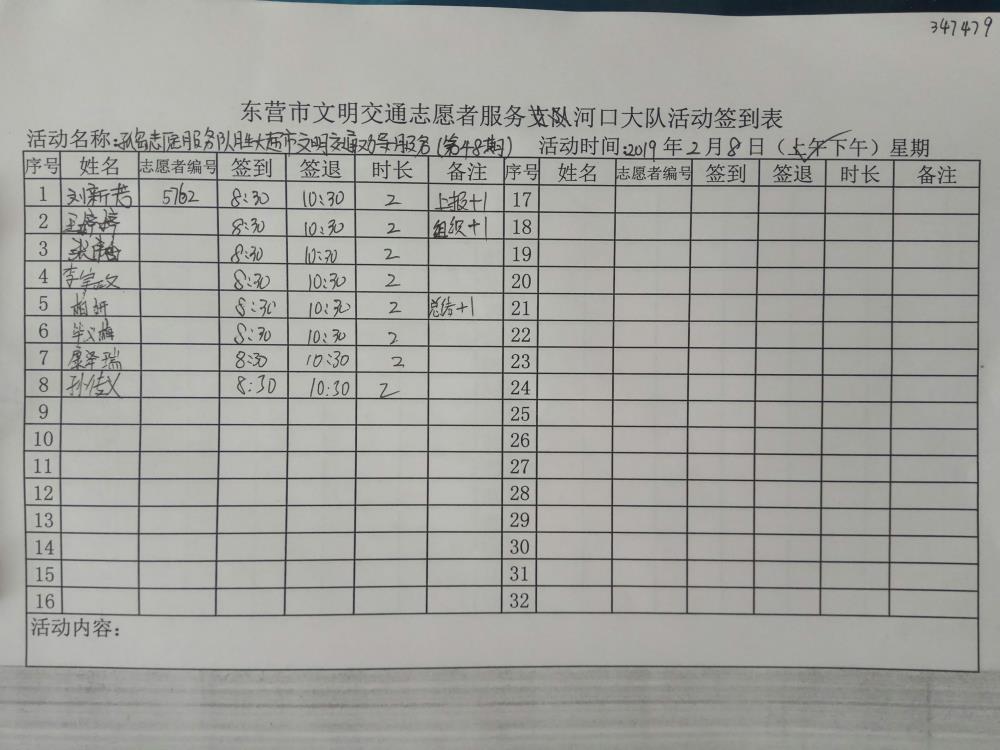 347479
东营市文明交通志愿者服务支队河口大队活动签到表
活动名称:孤岛志愿服务队胜大超市文明交通劝导服务(第48期) 活动时间:2019年2月8日(上午下午)星期
序号 姓名 志愿者编号 签到 签退 时长 备注 序号 姓名 志愿者编号 签到 签退 时长 备注
1 刘新 5762 8:30 10:30 2 上报+1 17
2 王婷婷 8:30 10:30 2 组织+1 18
3 8:30 10:30 2 19
4 李 8:30 10:30 2 20
5 柏妍 8:30 10:30 2 总结+1 21
6 毕义梅 8:30 10:30 2 22
7 康泽瑞 8:30 10:30 2 23
8 孙传义 8:30 10:30 2 24
9 25
10 26
11 27
12 28
13 29
14 30
15 31
16 32
活动内容: